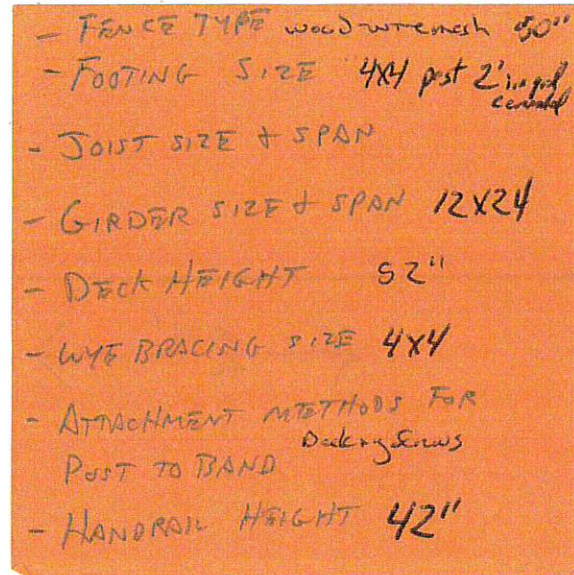 - FENCE TYPE wood-wiremesh 50"
- FOOTING SIZE 4x4 post 2' in grd
cemented
- JOIST SIZE & SPAN
- GIRDER SIZE & SPAN 12x24
- DECK HEIGHT 52"
- WYE BRACING SIZE 4x4
- ATTACHMENT METHODS FOR
Decking Screws
POST TO BAND
- HANDRAIL HEIGHT 42"